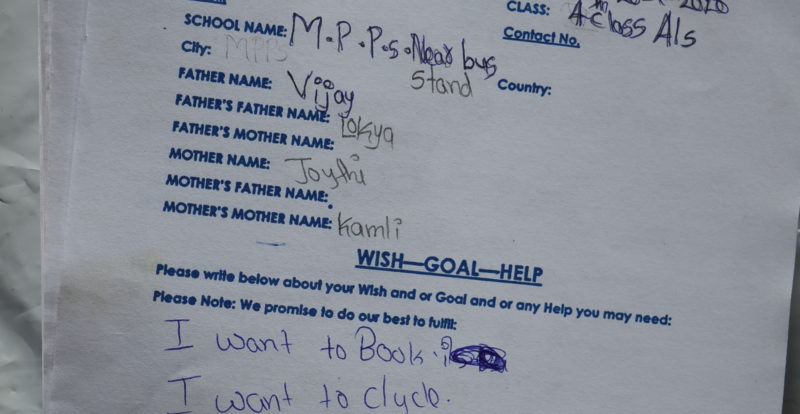 CLASS: 4th Class A/s
SCHOOL NAME: M.P.P.S. Near bus
Stand
City: MPPS
Contact No.
Country:
FATHER NAME: Vijay
FATHER'S FATHER NAME: Lokya
FATHER'S MOTHER NAME:
MOTHER NAME: Joythi
MOTHER'S FATHER NAME:
MOTHER'S MOTHER NAME: Kamli
WISH—GOAL—HELP
Please write below about your Wish and or Goal and or any Help you may need:
Please Note: We promise to do our best to fulfil:
I want to Book.
I want to clycle.